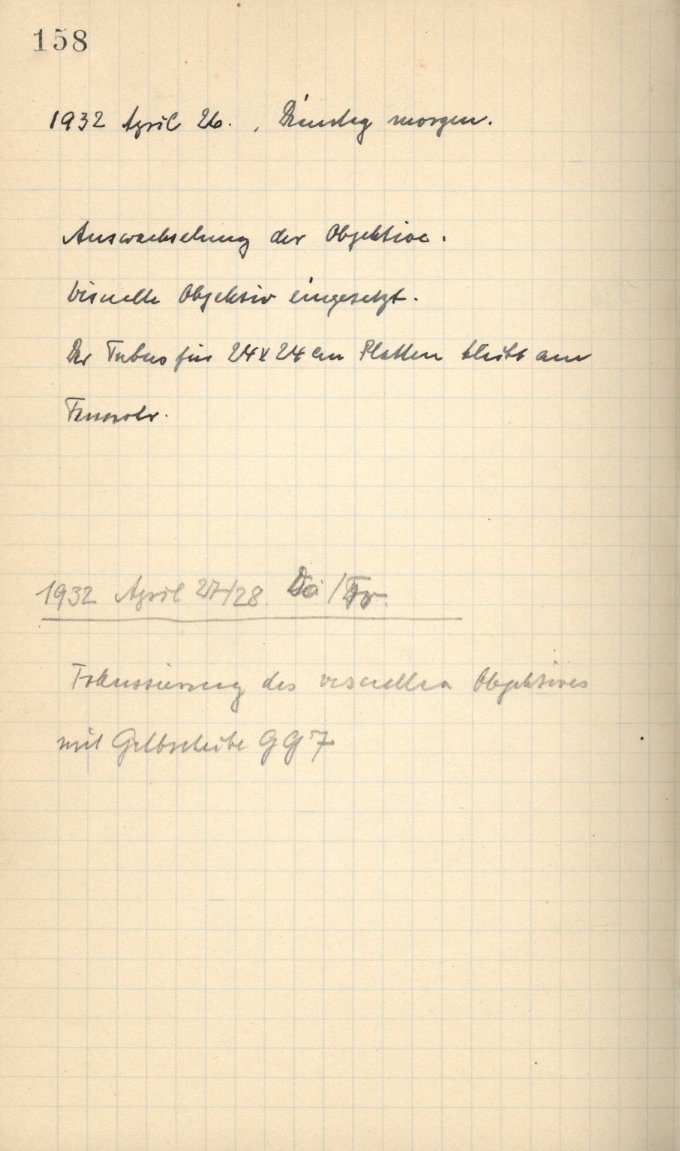 158
1932 April 26. , Dienstag morgen.
Auswechselung der Objektive.
Visuelle Objektiv eingesetzt.
Der Tubus für 24x24 cm Platten bleibt am
Fernrohr.
1932 April 27/28.
Fokussierung des visuellen Objektives
mit Gelbscheibe GG 7